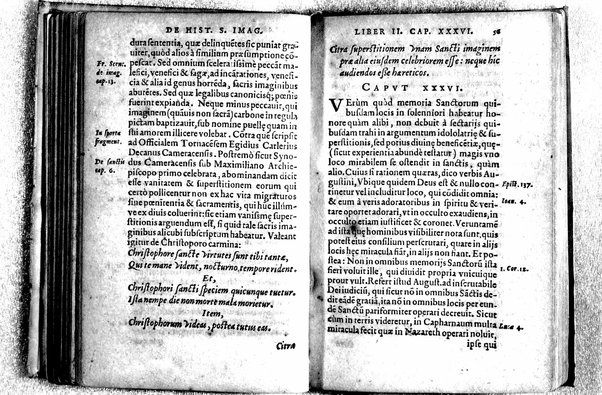 DE HIST. S. IMAG.
dura sententia, quæ delinquẽtes sic puniat gra
uiter, quod alios à similium præsumptione cõ-
pescat. Sed omnium scelerатissimè peccãt ma-
lefici, venefici & sagæ, ad incãtationes, venefi-
cia & alia id genus horrẽda, sacris imaginibus
abutẽtes. Sed quæ legalibus canonicisq; pœnis
fuerint expiãda. Neque minus peccauit, qui
imaginem (quàuis non sacrã) carbone in regula
pictam baptizauit, sub nomine puellæ quam in
sui amorem illicere volebat. Cõtra quẽ scripsit
ad Officialem Tornacẽsem Egidius Carlerius
Decanus Cameracensis. Postremò sicut Syno-
dus Cameracensis sub Maximiliano Archie-
piscopo primo celebrata, abominandam dicit
esse vanitatem & superstitionem eorum qui
certò pollicentur non ex hac vita migraturos
sine pœnitentia & sacramentis, qui hũc illumue
ex diuis coluerint: sic etiam vanissimę super-
stitionis arguendum est, si quid tale sacris ima-
ginibus alicubi subscriptum habeatur. Valeant
igitur de Christoporo carmina:
Christophore sancte virtutes sunt tibi tantæ,
Qui te mane vident, nocturno, tempore rident.
Et,
Christophori sancti speciem quicunque tuetur.
Ista nempe die non morte mala morietur.
Item,
Christophorum videas, postea tutus eas.
Citra
Fr. Strac.
de imag.
cap. 13.
In sporta
fragment.
De sanctis
cap. 6.
LIBER II. CAP. XXXVI. 56
Citra superstitionem vnam Sancti imaginem
præ alia eiusdem celebriorem esse: neque hic
audiendos esse hæreticos.
CAPVT XXXVI.
VErùm quòd memoria Sanctorum qui-
busdam locis in solenniori habeatur ho-
nore quàm alibi, non debuit à sectarijs qui-
busdam trahi in argumentum idololatriæ & su-
perstitionis, sed potius diuinę beneficẽtiæ, quę-
(sicut experientia abundè testatur) magis vno
loco mirabilem se ostendit in sanctis, quàm
alio. Cuius si rationem quæras, dico verbis Au-
gustini, Vbique quidem Deus est & nullo con-
tinetur vel includitur loco, qui cõdidit omnia:
& eum à veris adoratoribus in spiritu & veri-
tate oportet adorari, vt in occulto exaudiens, in
occulto etiam iustificet & coronet. Veruntamẽ
ad ista quæ hominibus visibiliter nota sunt, quis
potest eius consilium perscrutari, quare in alijs
locis hęc miracula fiãt, in alijs non fiant. Et po-
stea: Non in omnibus memorijs Sanctorũ ista
fieri voluit ille, qui diuidit propria vnicuique
prout vult. Refert istud August. ad inscrutabile
Dei iudiciũ, qui sicut nõ in omnibus Sãctis de-
dit eãdẽ gratiã, ita nõ in omnibus locis per eun-
dẽ Sanctũ pariformiter operari decreuit. Sicut
cum in terris videretur, in Capharnaum multa
miracula fecit quæ in Nazareth operari noluit,
ipse qui
Epist. 137.
Ioan. 4.
1. Cor. 12.
Luca 4.